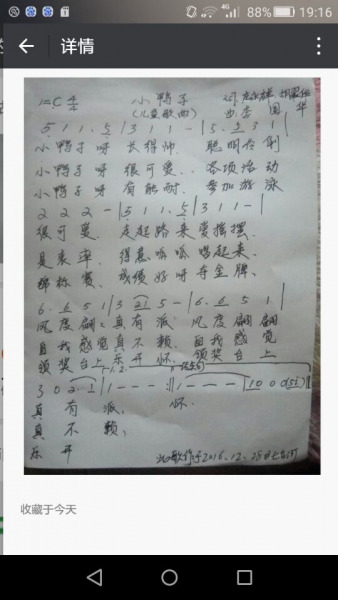 19:16
88%
4G
详情
1=C 4/4 小鸭子
(儿童歌曲)
曲:李国华
5 1 1. 5 | 3 1 1 - | 5. 5 3 1 |
小鸭子呀 长得帅 聪明伶俐
小鸭子呀 很可爱 各项活动
小鸭子呀 有能耐 参加游泳
2 2 2 - | 5 1 1. 5 | 3 1 1 - |
很可爱 走起路来爱摇摆
真 得意呱呱唱起来
锦标赛 成绩好呀夺金牌
6. 6 5 1 | 3 21 5 - | 6. 6 5 1 |
风度翩翩真有派 风度翩翩
自我感觉真不赖 自我感觉
领奖台上乐开怀 领奖台上
3 0 2. 1 | 1 - - - :| 1 - - - | 1 0 0 (51) ||
真有派 怀
真不赖
乐开
此歌作于2016.12.28日
收藏于今天